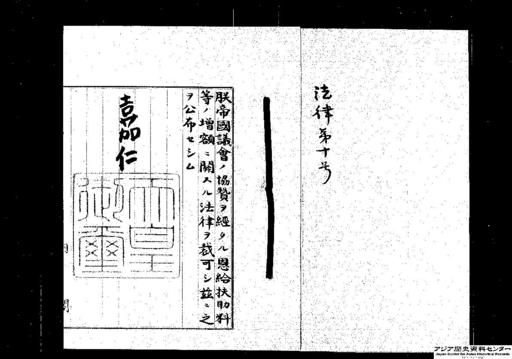 法律第十号
朕帝國議會ノ協賛ヲ經タル恩給扶助料
等ノ増額ニ關スル法律ヲ裁可シ茲ニ之
ヲ公布セシム
嘉仁
天皇
御璽
アジア歴史資料センター
Japan Center for Asian Historical Records